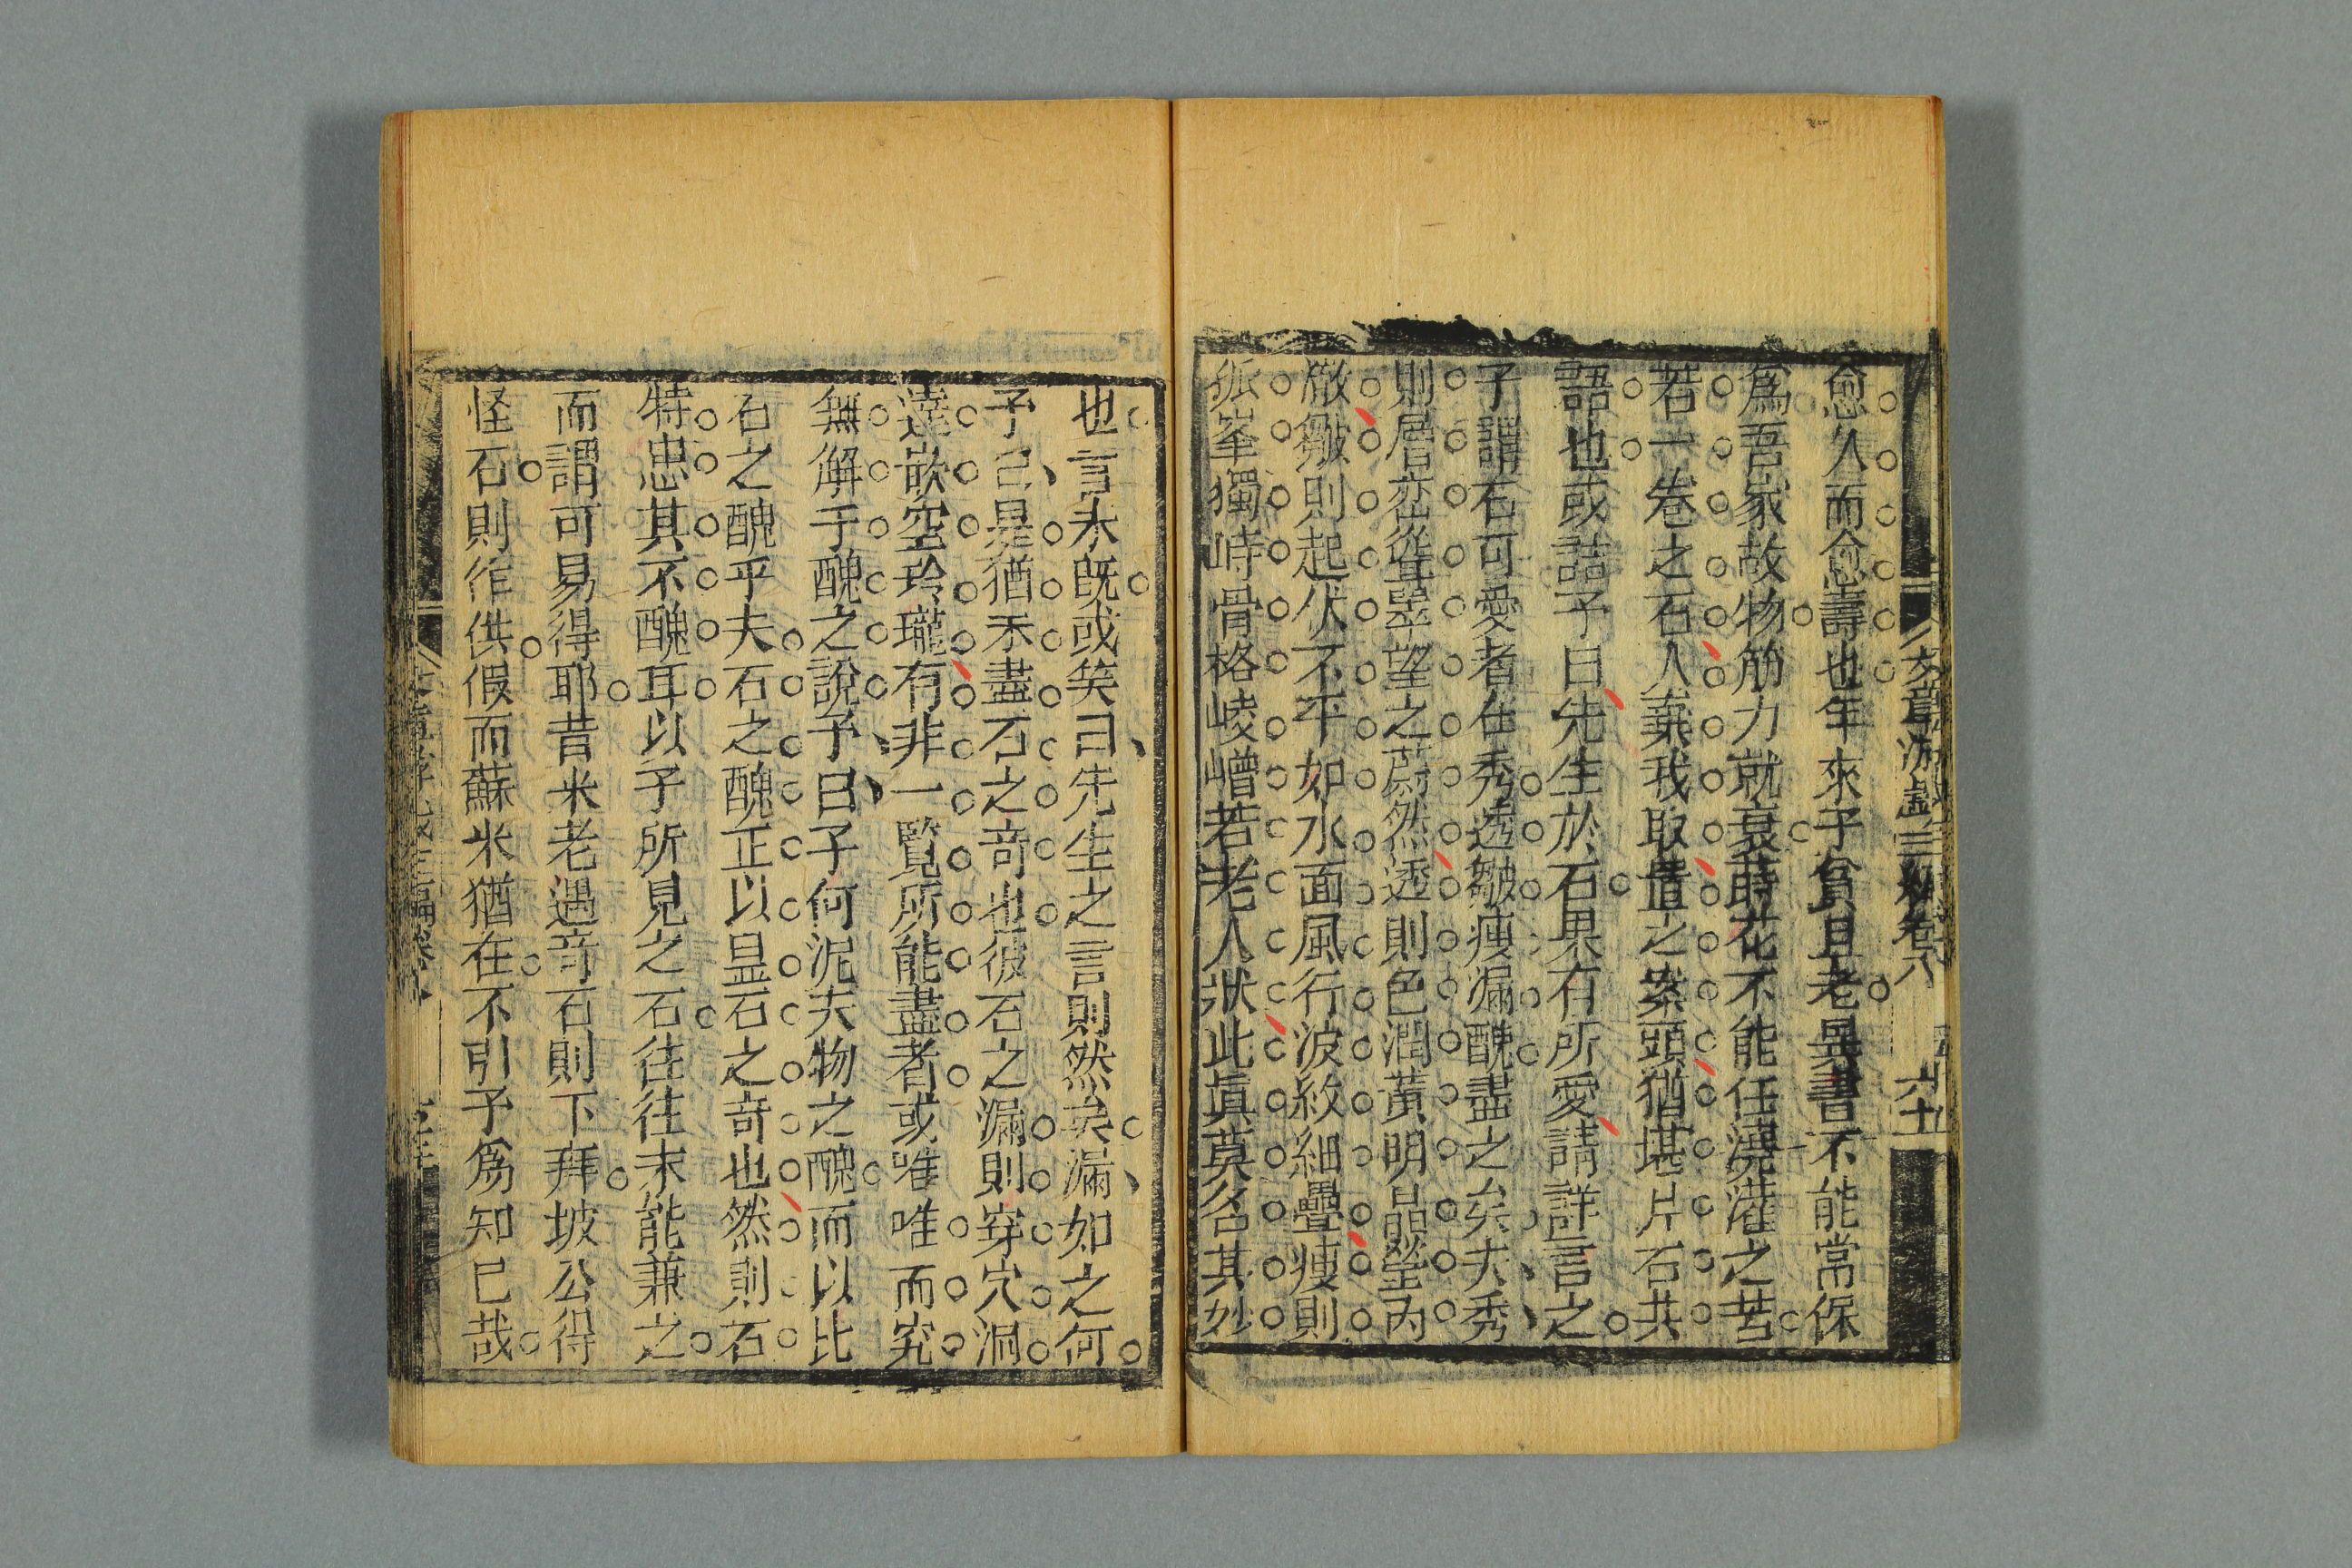 文章游戲三編卷八 六十五
愈久而愈壽也年來予貧且老異書不能常保
爲吾家故物筋力就衰蒔花不能任澆灌之苦
若一卷之石人棄我取置之案頭猶堪片石共
語也或詰予曰先生於石果有所愛請詳言之
予謂石可愛者在秀透皺瘦漏醜盡之矣夫秀
則層巒聳翠望之蔚然透則色潤黃明晶瑩內
澈皺則起伏不平如水面風行波紋細疊瘦則
孤峯獨峙骨格崚嶒若老人狀此眞莫名其妙
也言未旣或笑曰先生之言則然矣漏如之何
予曰是猶未盡石之奇也彼石之漏則穿穴洞
達嵌空玲瓏有非一覽所能盡者或唯唯而究
無解于醜之說予曰子何泥夫物之醜而以比
石之醜乎夫石之醜正以显石之奇也然則石
特患其不醜耳以予所見之石往往未能兼之
而謂可易得耶昔米老遇奇石則下拜坡公得
怪石則作供假而蘇米猶在不引予爲知已哉